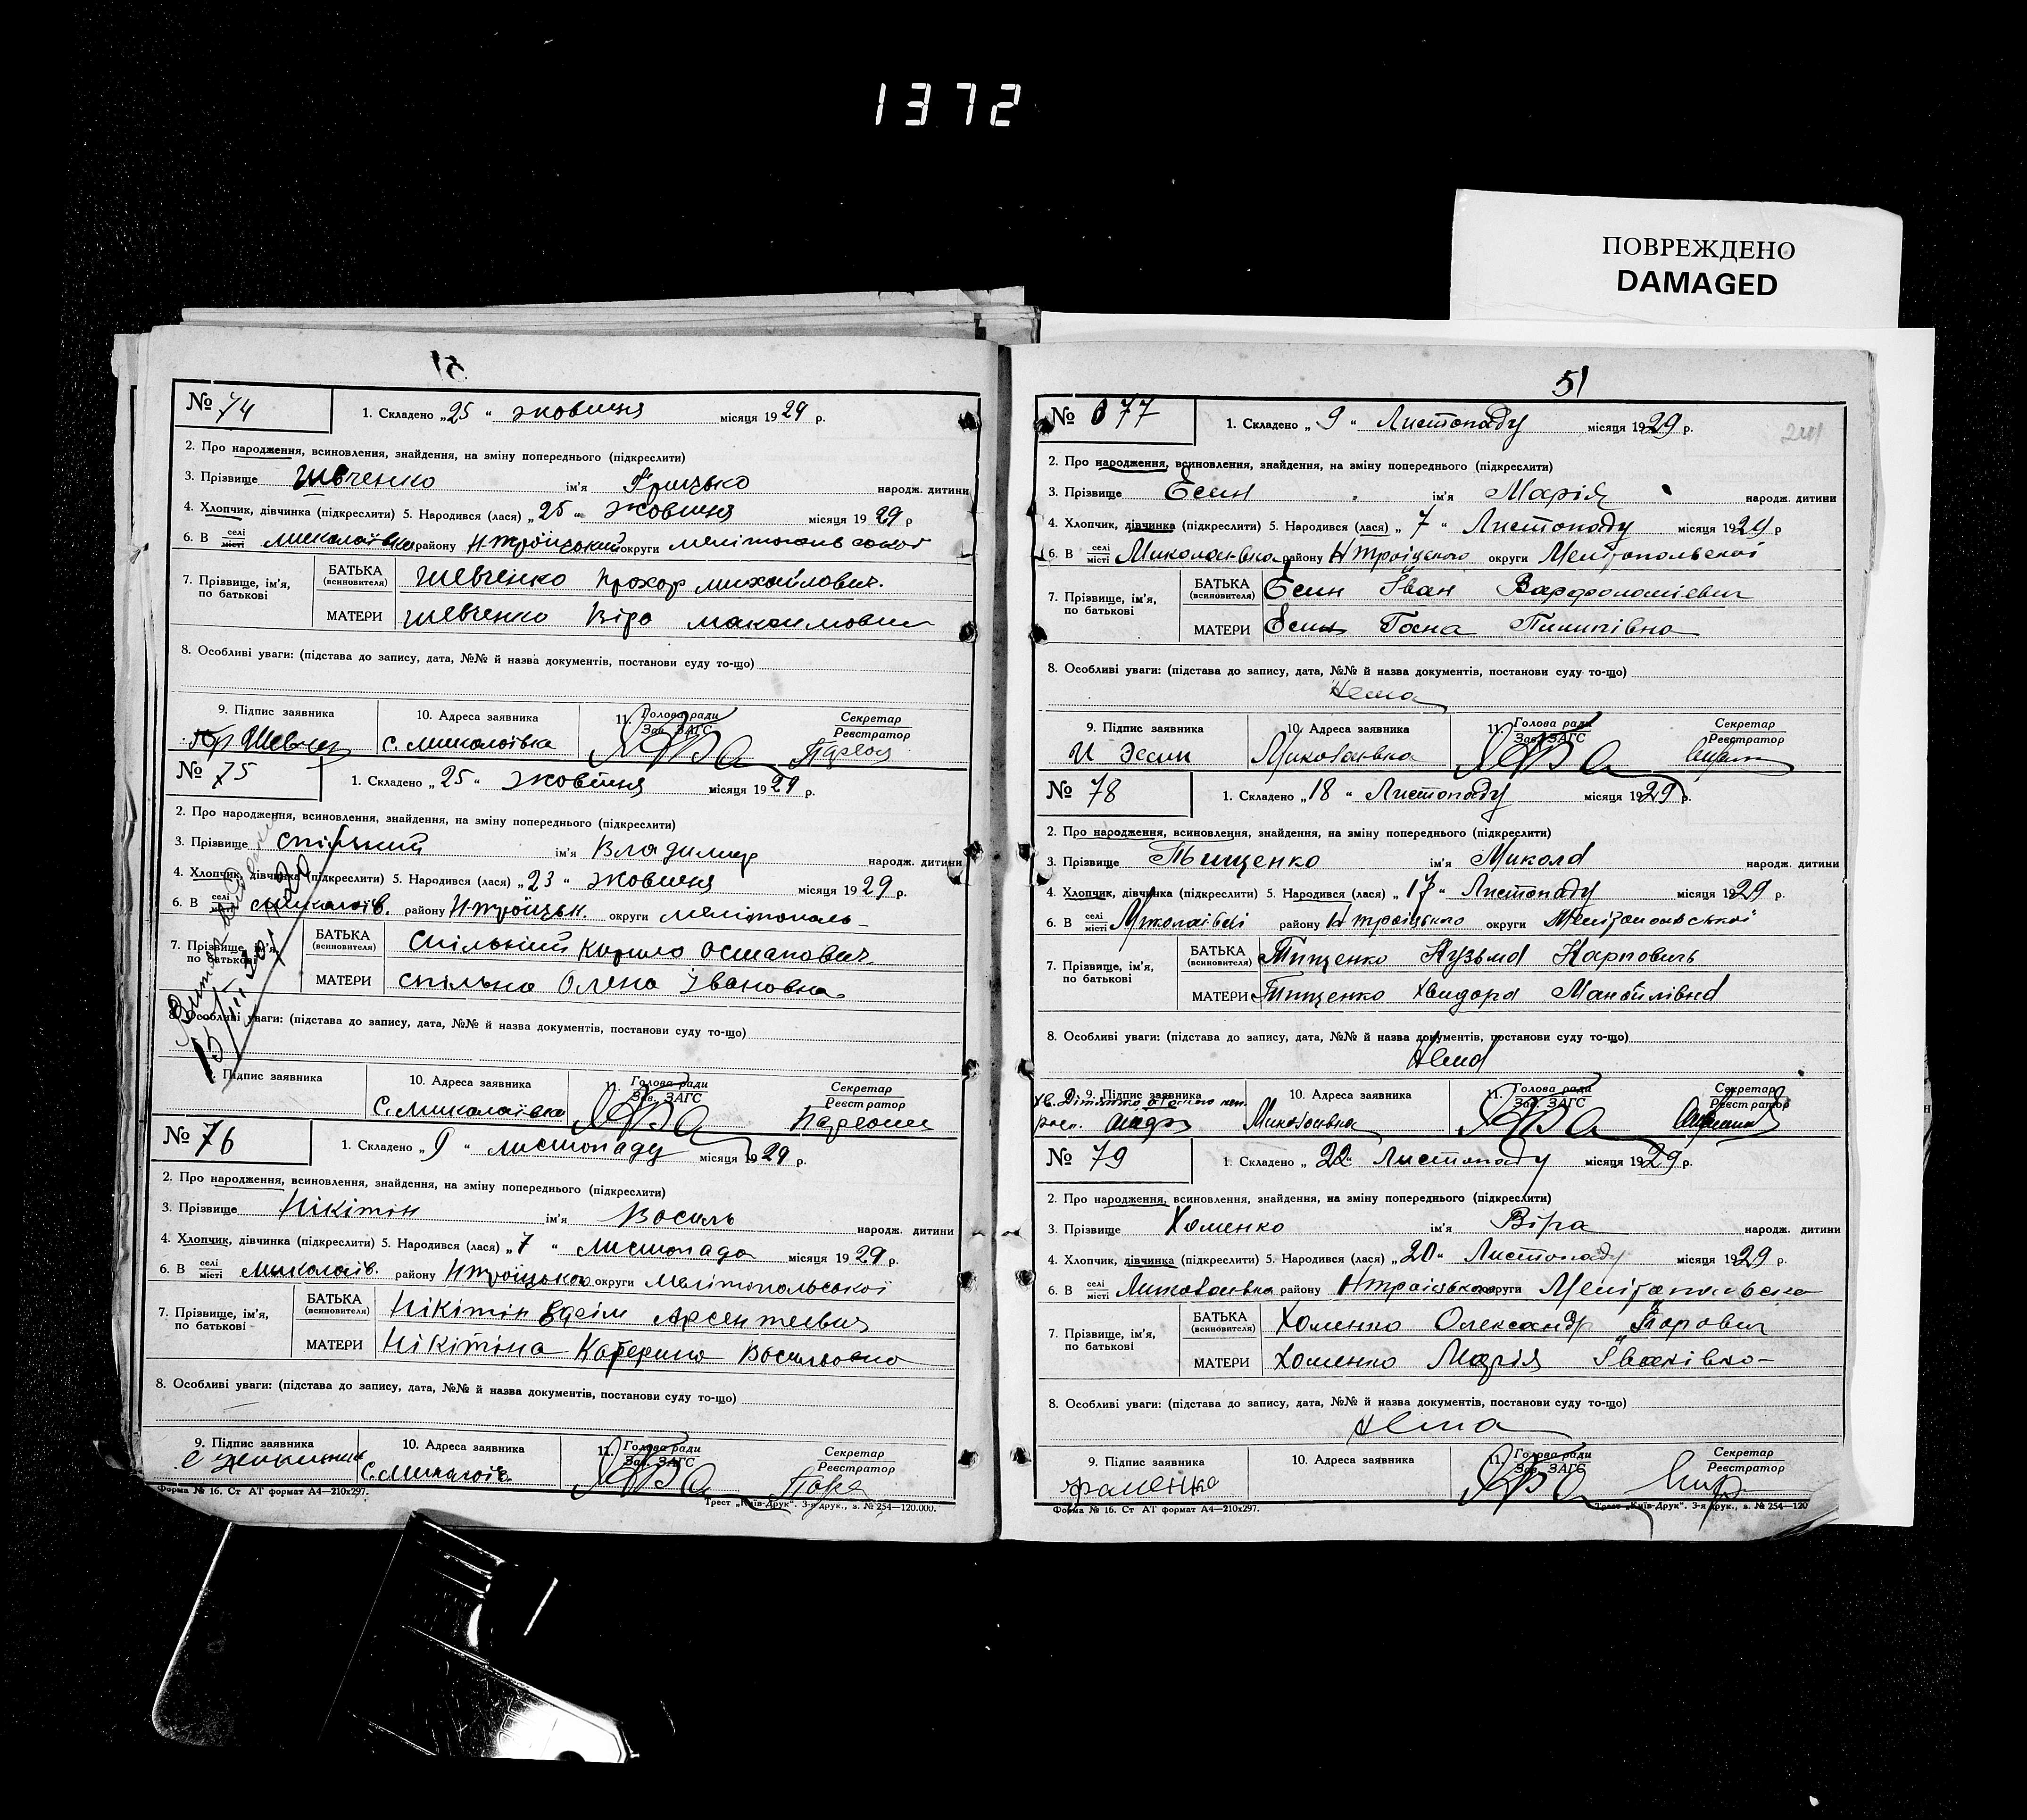 1372
ПОВРЕЖДЕНО
DAMAGED
№ 74
1. Складено „25“ жовтня місяця 1929 р.
2. Про народження, всиновлення, знайдення, на зміну попереднього (підкреслити)
3. Прізвище Шевченко ім'я Грицько народж. дитини
4. Хлопчик, дівчинка (підкреслити) 5. Народився (лася) „25“ жовтня місяця 1929 р
6. В селі місті Миколаївка району Нтроїцький округи
7. Прізвище, ім'я, по батькові
БАТЬКА (всиновителя) Шевченко Прохор Михайлович.
МАТЕРИ Шевченко Віра Максимовна
8. Особливі уваги: (підстава до запису, дата, №№ й назва документів, постанови суду то-що)
9. Підпис заявника 10. Адреса заявника 11. Голова ради Зав. ЗАГС Секретар Реєстратор
с. Миколаївка
№ 75
1. Складено „25“ жовтня місяця 1929 р.
2. Про народження, всиновлення, знайдення, на зміну попереднього (підкреслити)
3. Прізвище Спільний ім'я Владимир народж. дитини
4. Хлопчик, дівчинка (підкреслити) 5. Народився (лася) „23“ жовтня місяця 1929 р.
6. В селі місті Миколаїв. району Нтроїцьк. округи Мелітополь-
7. Прізвище, ім'я, по батькові
БАТЬКА (всиновителя) Спільний Кирило Остапович
МАТЕРИ Спільна Олена Івановна
8. Особливі уваги: (підстава до запису, дата, №№ й назва документів, постанови суду то-що)
9. Підпис заявника 10. Адреса заявника 11. Голова ради Зав. ЗАГС Секретар Реєстратор
С. Миколаївка
№ 76
1. Складено „9“ листопаду місяця 1929 р.
2. Про народження, всиновлення, знайдення, на зміну попереднього (підкреслити)
3. Прізвище Нікітін ім'я Василь народж. дитини
4. Хлопчик, дівчинка (підкреслити) 5. Народився (лася) „7“ листопада місяця 1929 р.
6. В селі місті Миколаїв. району Нтроїцького округи Мелітопольської
7. Прізвище, ім'я, по батькові
БАТЬКА (всиновителя) Нікітін Арсентиевич
МАТЕРИ Нікітіна Катерина Васильовна
8. Особливі уваги: (підстава до запису, дата, №№ й назва документів, постанови суду то-що)
9. Підпис заявника 10. Адреса заявника 11. Голова ради Зав. ЗАГС Секретар Реєстратор
С. Миколаїв.
Форма № 16. Ст АТ формат А4—210х297. Трест „Київ-Друк“. 3-я друк., з. № 254—120.000.
51
№ 77
1. Складено „9“ Листопаду місяця 1929 р.
2. Про народження, всиновлення, знайдення, на зміну попереднього (підкреслити)
3. Прізвище Есин ім'я Марія народж. дитини
4. Хлопчик, дівчинка (підкреслити) 5. Народився (лася) „7“ Листопаду місяця 1929 р
6. В селі місті Миколаєвка району Нтроіцкого округи Мелітопольської
7. Прізвище, ім'я, по батькові
БАТЬКА (всиновителя) Есин Іван Варфоломієвич
МАТЕРИ Есин Пилипівна
8. Особливі уваги: (підстава до запису, дата, №№ й назва документів, постанови суду то-що)
Нема
9. Підпис заявника 10. Адреса заявника 11. Голова ради Зав. ЗАГС Секретар Реєстратор
И Эсин Миколаівка
№ 78
1. Складено „18“ Листопаду місяця 1929 р.
2. Про народження, всиновлення, знайдення, на зміну попереднього (підкреслити)
3. Прізвище Тищенко ім'я Микола народж. дитини
4. Хлопчик, дівчинка (підкреслити) 5. Народився (лася) „17“ Листопаду місяця 1929 р.
6. В селі місті Миколаівкі району Нтроіцького округи Мелітопольської
7. Прізвище, ім'я, по батькові
БАТЬКА (всиновителя) Тищенко Кузьма Карпович
МАТЕРИ Тищенко Хвидора Манойлівна
8. Особливі уваги: (підстава до запису, дата, №№ й назва документів, постанови суду то-що)
Нема
9. Підпис заявника 10. Адреса заявника 11. Голова ради Зав. ЗАГС Секретар Реєстратор
Миколаівка
№ 79
1. Складено „22“ Листопаду місяця 1929 р.
2. Про народження, всиновлення, знайдення, на зміну попереднього (підкреслити)
3. Прізвище Хоменко ім'я Віра народж. дитини
4. Хлопчик, дівчинка (підкреслити) 5. Народився (лася) „20“ Листопаду місяця 1929 р.
6. В селі місті Миколаівка району Нтроіцького округи
7. Прізвище, ім'я, по батькові
БАТЬКА (всиновителя) Хоменко Олександр
МАТЕРИ Хоменко Марія Іванівна
8. Особливі уваги: (підстава до запису, дата, №№ й назва документів, постанови суду то-що)
Нема
9. Підпис заявника 10. Адреса заявника 11. Голова ради Зав. ЗАГС Секретар Реєстратор
Форма № 16. Ст АТ формат А4—210х297. Трест „Київ-Друк“. 3-я друк., з. № 254—120